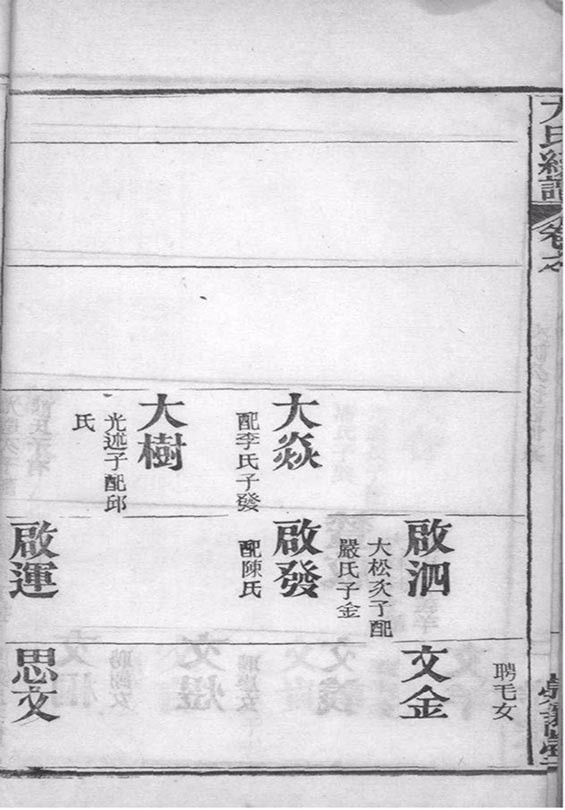 大焱
配李氏子發
大樹
光述子配邱
氏
啟泗
大松次子配
嚴氏子金
啟發
配陳氏
啟運
聘毛女
文金
思文